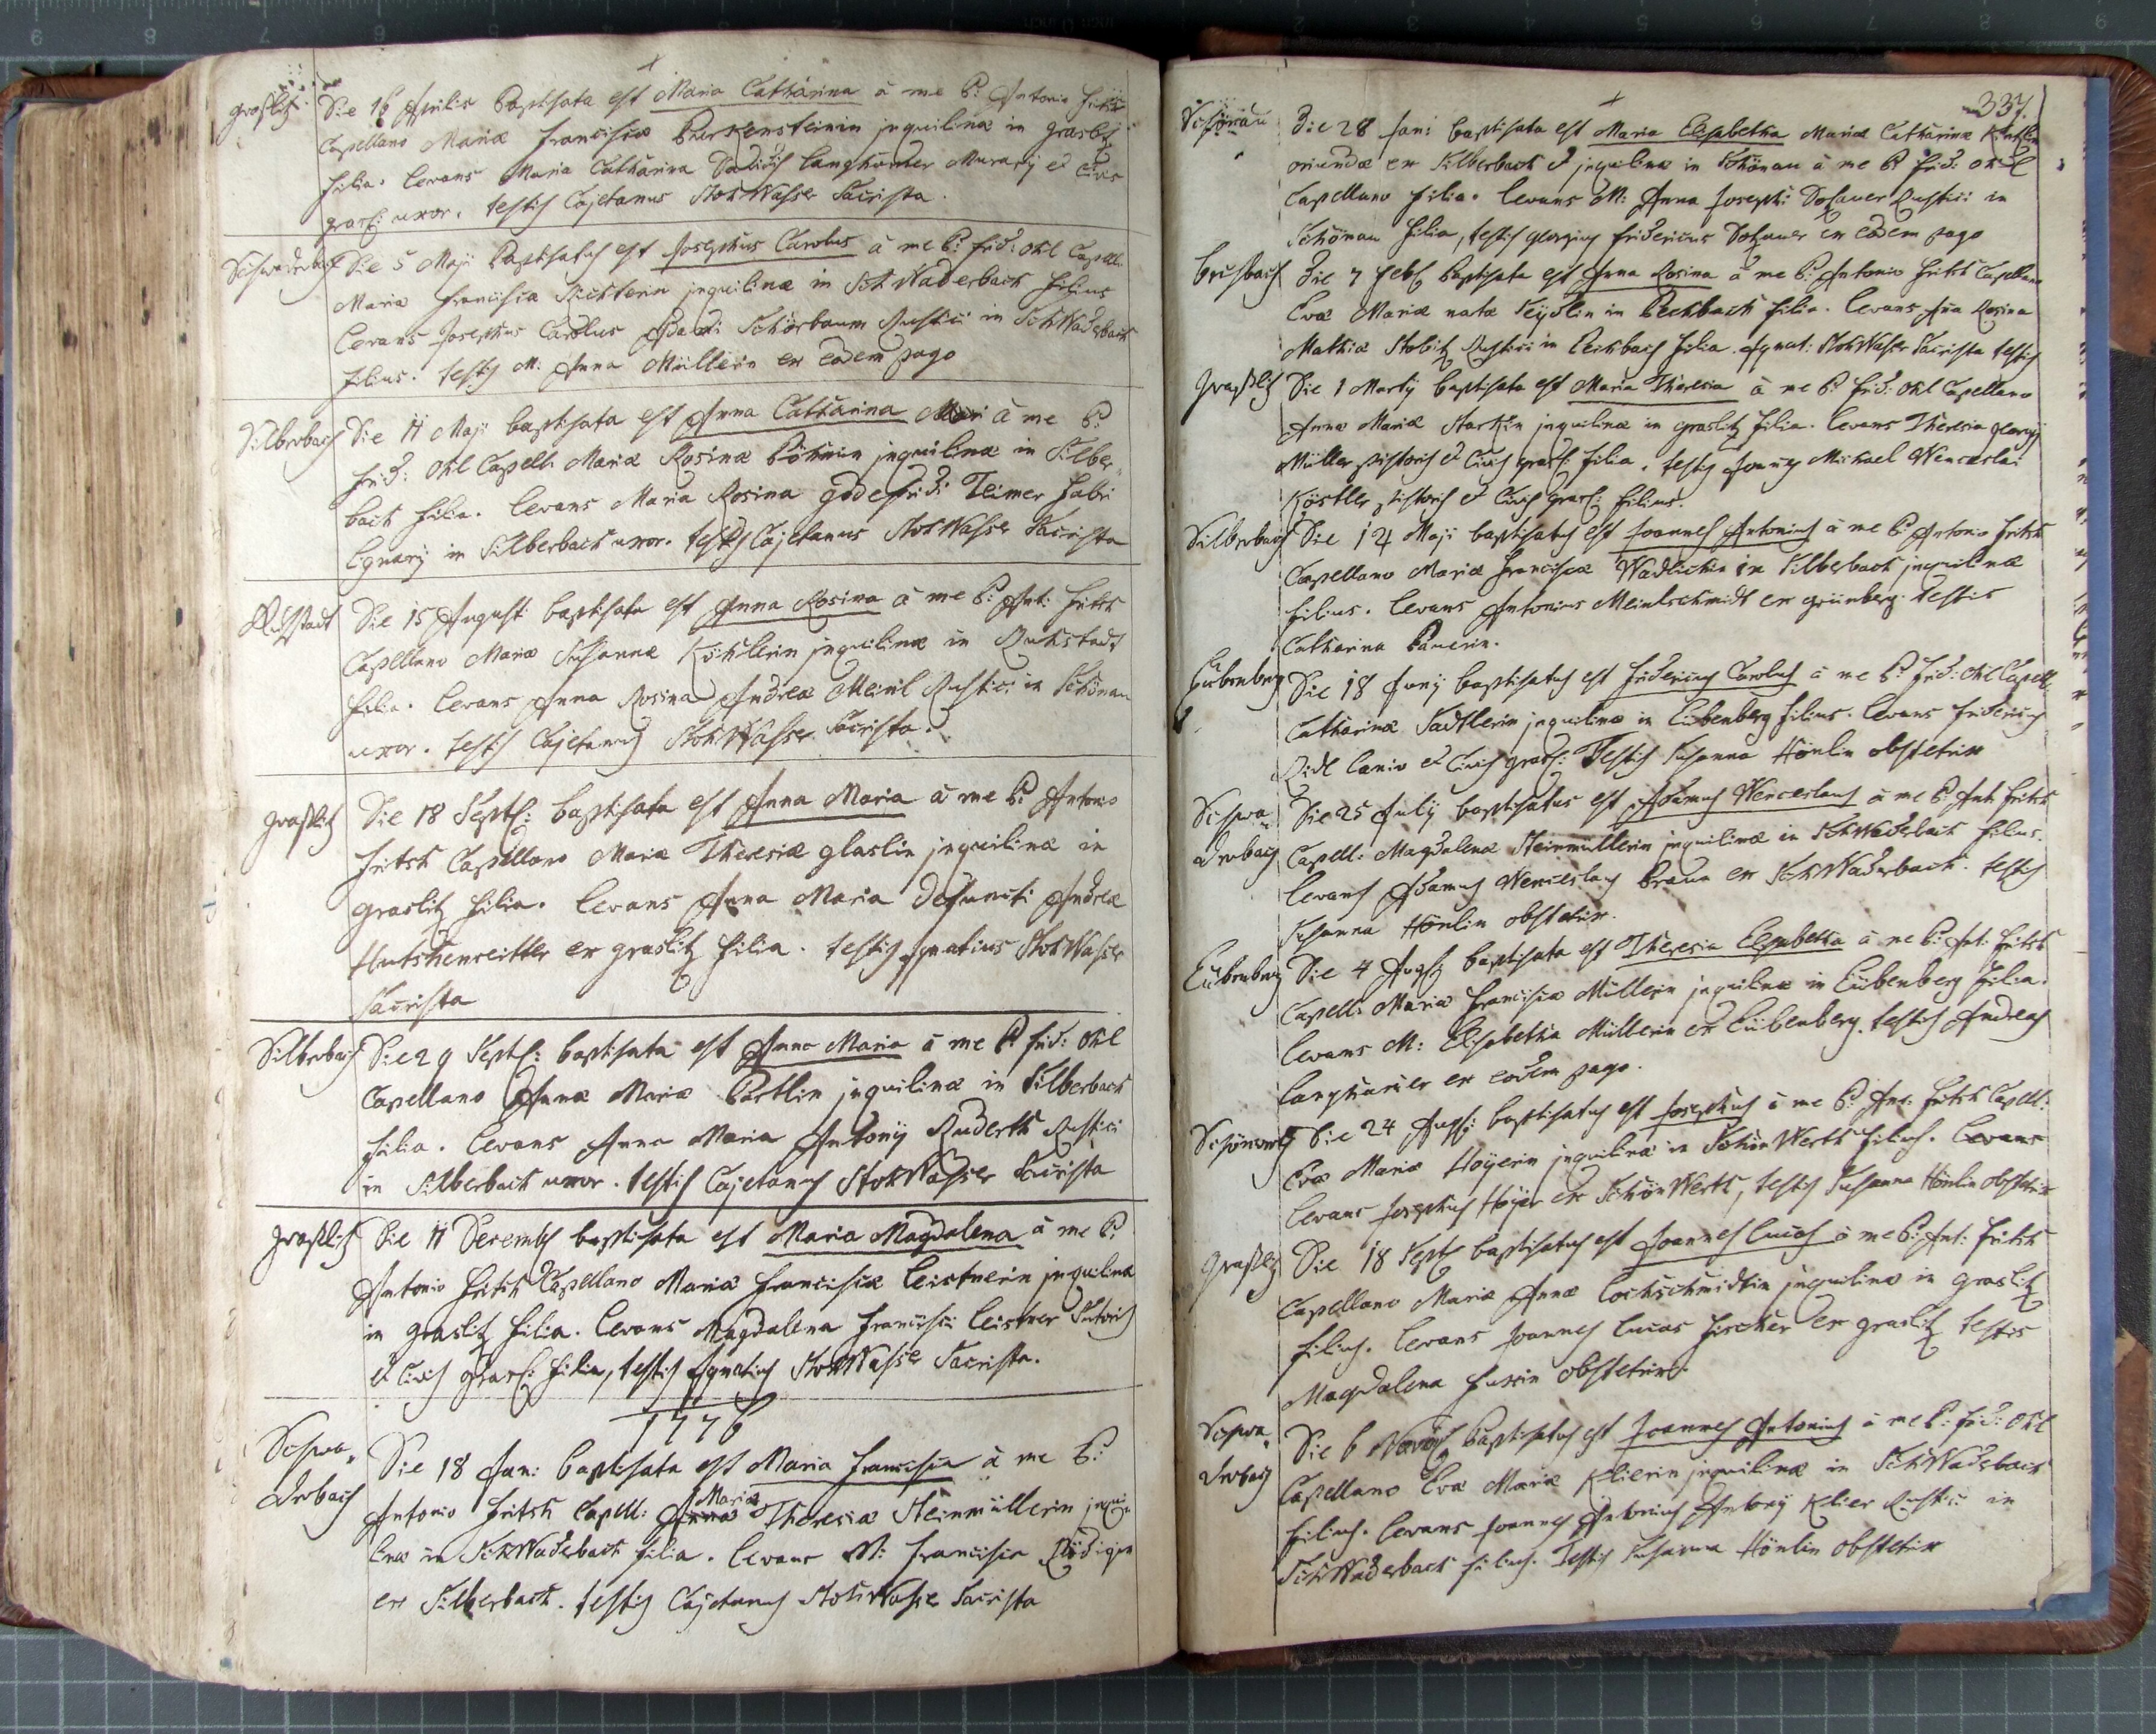 Graßlitz Die 16 Aprilis Baptisata est Maria Catharina à me P: Antonio Fritsch
Capellano Mariæ Franciscæ Parkensteinin jnquilinæ in Graslitz
Filia. levans Maria Catharina Davidis Langhamer Murarij et Civis
grasl: uxor. testis Cajetanus StokWasser Sacrista.
Schwaderbach Die 5 Maji Baptisatus est Josephus Carolus à me P: Frid: Okl Capell:
Mariæ Franciscæ Richterin jnquilinæ in SchWaderbach Filius
levans Josephus Carolus Adami Schörbaum Rustici in SchWaderbach
filius. testis M: Anna Müllerin ex eodem pago
Silberbach Die 11 Maji baptisata est Anna Catharina à me P:
Frid: Okl Capell: Mariæ Rosinæ Böhmin jnquilinæ in Silber
bach filia. levans Maria Rosina Godefridi Teimer Fabri
lignarij in Silberbach uxor. testis Cajetanus StokWasser Sacrista
Ruhstadt Die 15 Augusti baptisata est Anna Rosina à me P: Ant: Fritsch
Capellano Mariæ Susannæ Köhlerin jnquilinæ in Ruhstadt
filia. levans Anna Rosina Andreæ Meinl Rustici in Schönau
uxor. testis Cajetanus StokWasser Sacrista.
Graßlitz Die 18 Septbr: baptisata est Anna Maria à me P: Antonio
Fritsch Capellano Mariæ Theresiæ Glaslin jnquilinæ in
graslitz filia. levans Anna Maria Defuncti Andreæ
Hutschenreitter ex graslitz filia. testis Ignatius StokWasser
Sacrista
Silberbach Die 29 Septbr: baptisata est Anna Maria à me P: Frid: Okl
Capellano Annæ Mariæ Partlin jnquilinæ in Silberbach
filia. levans Anna Maria Antonij Ruderth Rustici
in Silberbach uxor. testis Cajetanus StokWasser Sacrista
Graßlitz Die 11 Decembris baptisata est Maria Magdalena à me P:
Antonio Fritsch Capellano Mariæ Franciscæ Leistnerin jnquilinæ
in graslitz filia. levans Magdalena Francisci Leistner Sutoris
et Civis grasl: filia, testis Ignatius StokWasser Sacrista.
1776
Schwa,, Die 18 Jan: baptisata est Maria Francisca à me P:
derbach Antonio Fritsch Capell: Mariæ Theresiæ Steinmüllerin jnqui
linæ in SchWaderbach filia. levans M: Francisca
ex Silberbach. testis Cajetanus StokWasser Sacrista
337.
Schönau Die 28 Jan: baptisata est Maria Elisabetha Mariæ Catharinæ
oriundæ ex Silberbach et jnquilinæ in Schönau à me P: Frid: Okl
Capellano filia. levans M: Anna Josephi Dozauer Rustici in
Schönau filia, testis georgius Fridericus Dozauer ex eodem pago
Die 7 Febr Baptisata est Anna Rosina à me P: Antonio Fritsch Capellano
Evæ Mariæ natæ Seydlin in filia. levans Ana Rosina
Mathiæ Stobitz Rustici in filia. Ignat: StokWasser Sacrista testis
Graßlitz Die 1 Martij baptisata est Maria Theresia à me P: Frid: Okl Capellano
Annæ Mariæ Starkin jnquilinæ in graslitz filia. levans Theresia georgij
Müller pistoris et Civis grasl: filia. testis Joannes Michael Wenceslai
Köstler pistoris et Civis grasl: filius.
Silberbach Die 14 Maji baptisatus est Joannes Antonius à me P: Antonio Fritsch
Capellano Mariæ Franciscæ Wadlichin in Silberbach jnquilinæ
filius. levans Antonius Meinlschmidt ex grünberg. testis
Catharina Bauerin.
Eübenberg Die 18 Junij baptisatus est Fridericus Carolus à me P: Frid: Okl Capell:
Catharinæ Sattlerin jnquilinæ in Eübenberg filius. levans Fridericus
Ridl lanio et Civis grasl: Testis Susanna Hönlin obstetrix
Schwa,, Die 25 Julij baptisatus est Adamus Wenceslaus à me P: Ant: Fritsch
derbach Capell: Magdalenæ Steinmüllerin jnquilinæ in SchWaderbach filius.
levans Adamus Wenceslaus Braun ex SchWaderbach. testis
Susanna Hönlin obstetrix.
Eübenberg Die 4 Augst baptisata est Theresia Elisabetha à me P: Ant: Fritsch
Capell: Mariæ Franciscæ Müllerin jnquilinæ in Eübenberg filia.
levans M: Elisabetha Müllerin ex Eübenberg. testis Andreas
Langhamer ex eodem pago.
Schönwerth Die 24 Augst: baptisatus est Josephus à me P: Ant: Fritsch Capell:
Evæ Mariæ Hoÿerin jnquilinæ in SchönWerth filius. levans
levans Josephus Hoÿer ex SchönWerth, testis Susanna Hönlin obstetrix
Graßlitz Die 18 Septbr baptisatus est Joannes Lucas à me P: Ant: Fritsch
Capellano Mariæ Annæ Lochschmidtin jnquilinæ in graslitz
filius. levans Joannes Lucas Fischer ex graslitz testis
Magdalena Fuxin obstetrix.
Schwa,, Die 6 Novbr baptisatus est Joannes Antonius à me P: Frid: Okl
derbach Capellano Evæ Mariæ Klierin jnquilinæ in SchWaderbach
filius. levans Joannes Antonius Antonij Klier Rustici in
SchWaderbach filius. Testis Susanna Hönlin obstetrix